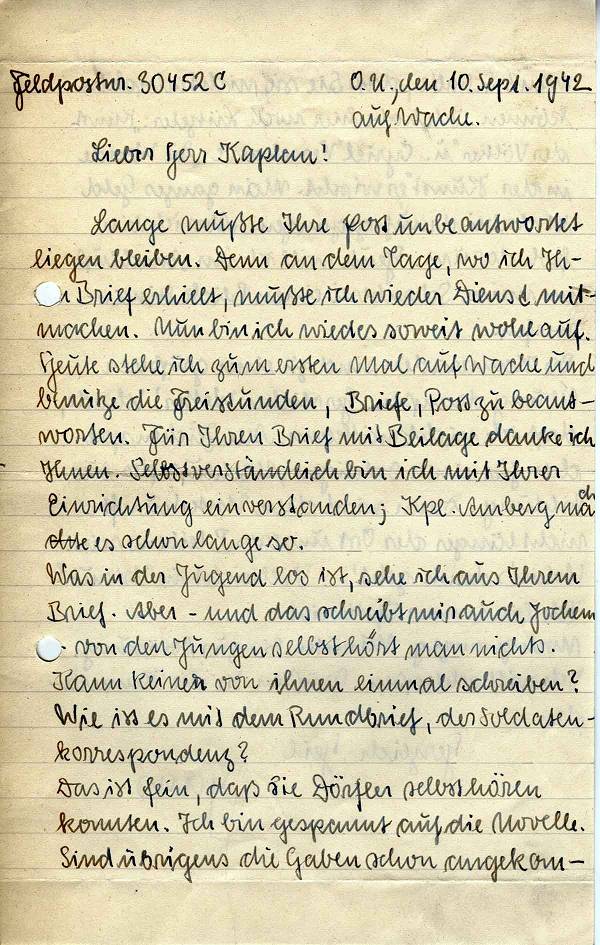 Feldpostnr. 30452 C O.U., den 10. Sept. 1942
auf Wache.
Lieber Herr Kaplan!
Lange mußte Ihre Post unbeantwortet
liegen bleiben. Denn an dem Tage, wo ich Ih-
n Brief erhielt, mußte ich wieder Dienst mit-
machen. Nun bin ich wieder soweit wohlauf.
Heute stehe ich zum ersten Mal auf Wache und
benutze die Freistunden, Briefe, Post zu beant-
worten. Für Ihren Brief mit Beilage danke ich
Ihnen. Selbstverständlich bin ich mit Ihrer
Einrichtung einverstanden; Kpl. Amberg mach
dte es schon lange so.
Was in der Jugend los ist, sehe ich aus Ihrem
Brief. Aber - und das schreibt mir auch Jochem
- von den Jungen selbst hört man nichts.
Kann keiner von ihnen einmal schreiben?
Wie ist es mit dem Rundbrief, der Soldaten-
korrespondenz?
Das ist fein, daß Sie Dörfler selbst hören
konnten. Ich bin gespannt auf die Novelle.
Sind übrigens die Gaben schon angekom-